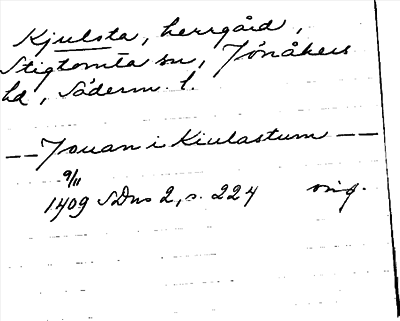 Kjulsta, herrgård,
Stigtomta sn, Jönåkers
hd, Söderm. l.
-- Jouan i Kiulastum --
9/11
1409 SDns 2, s. 224 orig.